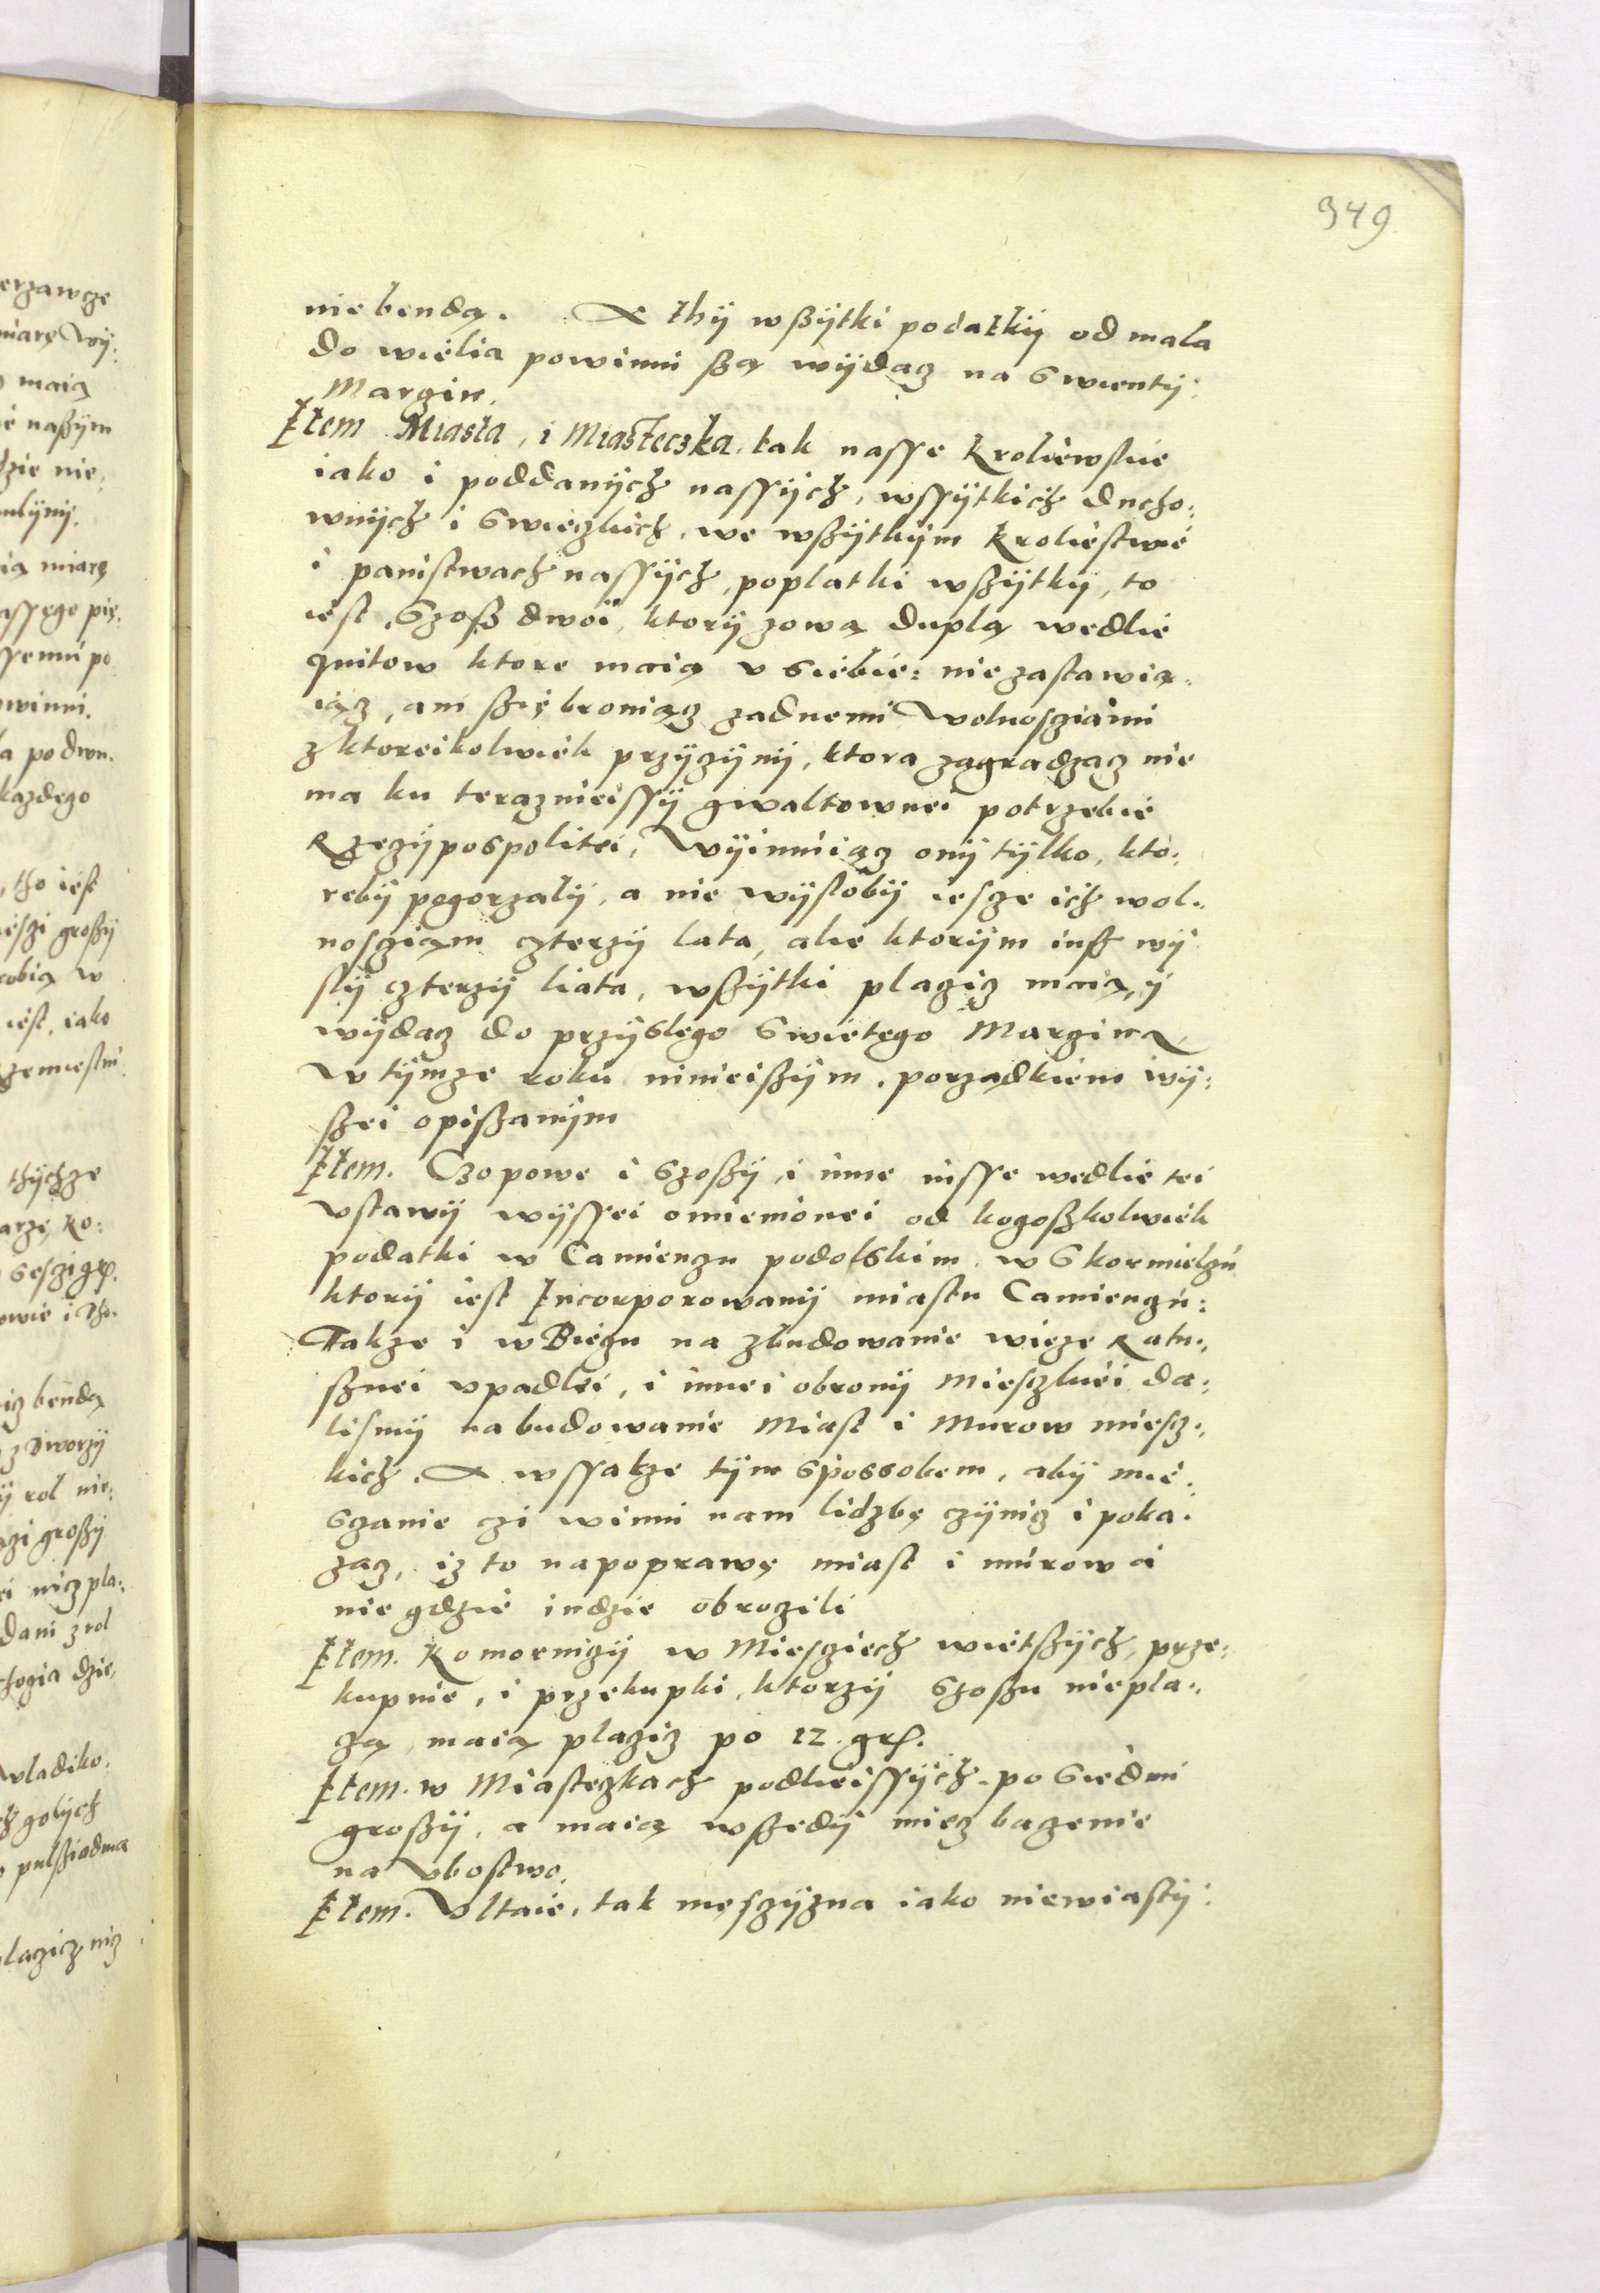 949
nie benda. A thÿ wßÿtki podatkÿ od mala
do wielia powinni ßą wÿdacz na Swientÿ
Marczin.
Item Miasta, i Miasteczka, tak nasse Kroliewskie
iako i poddanÿch nassÿch, wssÿtkich ducho:
wnÿch i Swieczkich, we wßÿtkim Kroliestwie
i panistwach nassÿch, poplatki wßÿtkÿ, to
iest, Szoß dwoi, ktorÿ zową duplą wedlie
quitow ktore maią v siebie: nie zastawia:
iącz, ani ßię broniącz zadnemi wolnosciami
z ktoreikolwiek przÿczÿnÿ, ktora zagradzacz nie
ma ku teraznieissÿ gwaltownei potrzebie
Rzeczÿpospolitei, Wÿimuiącz onÿ tÿlko, kto:
rebÿ pogorzalÿ, a nie wÿslobÿ iescze ich wol:
nosciam czterzÿ lata, alie ktorÿm iuss wÿ
slÿ czterzÿ liata, wßÿtki placzicz maią, ÿ
wÿdacz do przÿslego Swietego Marcina
w tÿmze roku ninieißÿm, porządkiem wÿ:
ßei opißanÿm
Item. Czopowe i Szoßÿ, i inne insse wedlie tei
vstawÿ wÿssei omienionei od kogoßkolwiek
podatki w Camienczu podolskim, w Skormielczu
ktorÿ iest Incorporowanÿ miastu Camienczu:
Takze i w Bieczu na zbudowanie wieze Ratu:
ßnei vpadlei, i innei obronÿ mieszkiei da:
lismÿ na budowanie Miast i Murow miesz:
kich. A wssakze tÿm spossobem, abÿ mie:
sczanie czi winni nam lidzbę czÿnicz i poka:
zacz, iz to na poprawę miast i murow a
nie gdzie indzie obroczili
Item. Komorniczÿ w Miesciech wietßÿch, prze:
kupnie, i przekupki, ktorzÿ Szoßu niepla:
czą, maią placzicz po 12. gr.
Item. w Miasteczkach podleissÿch, po siedmi
großÿ, a maią wßedÿ miecz baczenie
na Vbostwo.
Item. Vltaie, tak męsczÿzna iako niewiastÿ